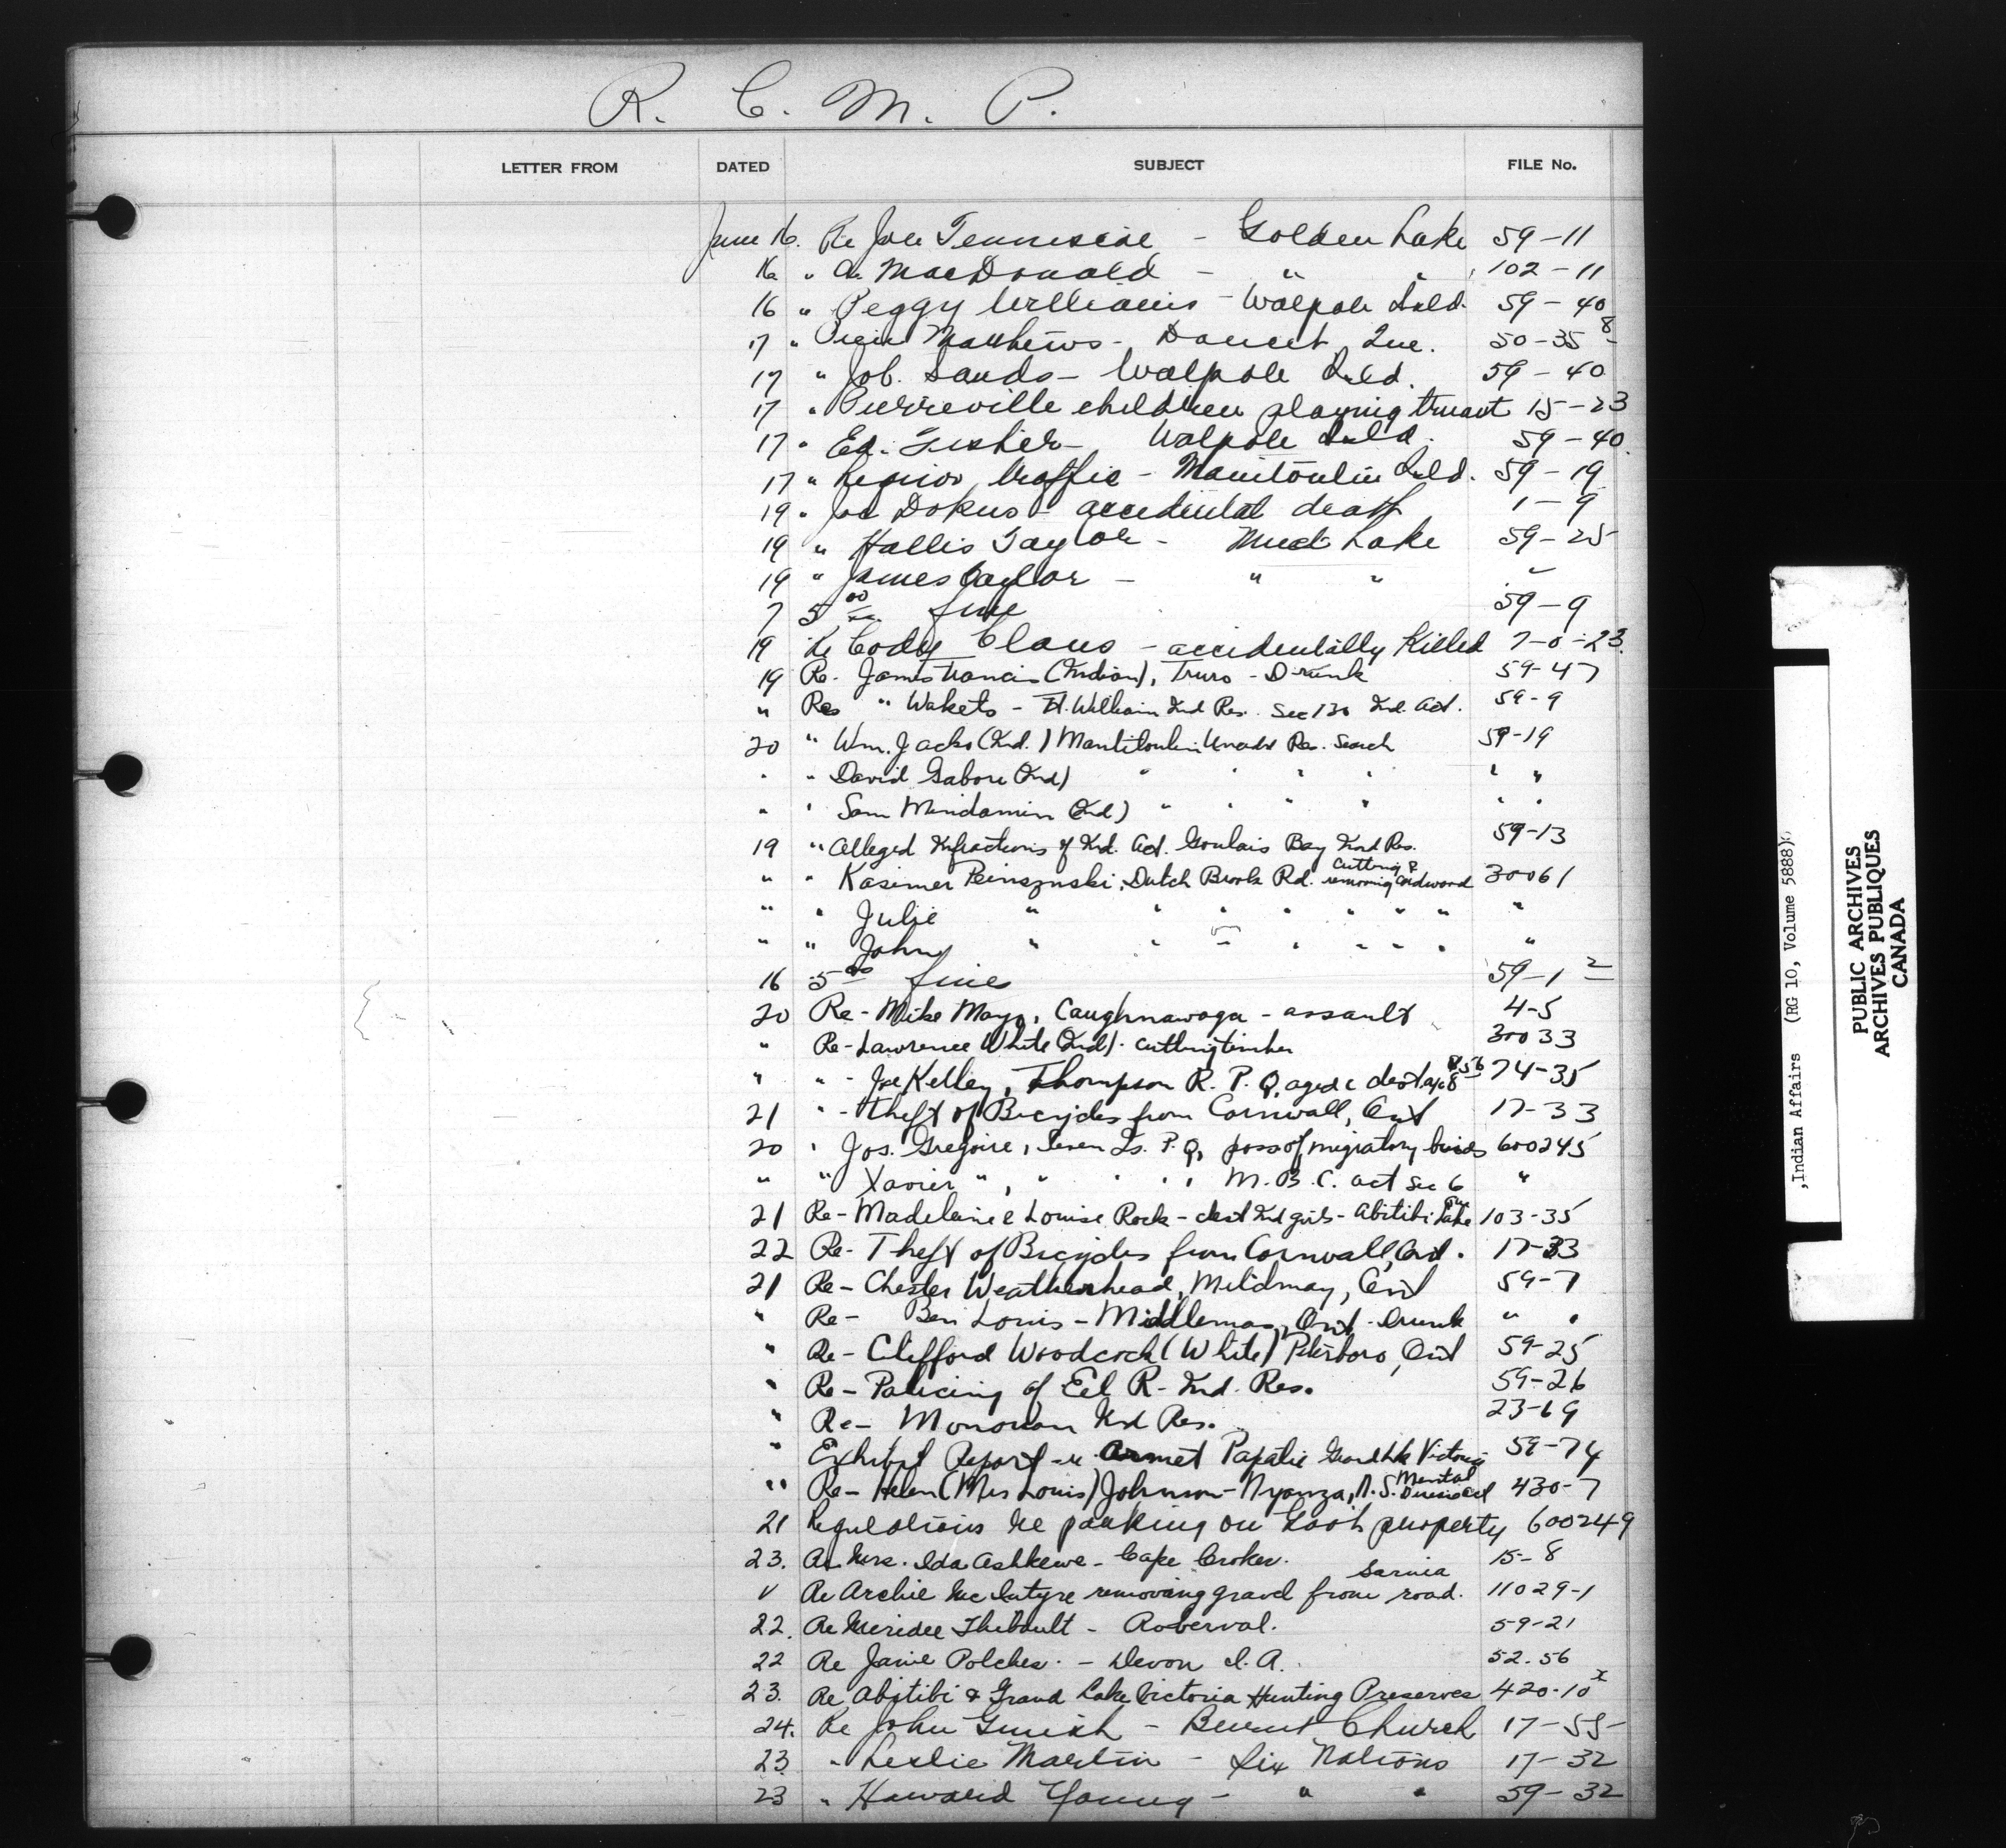 R. C. M. P.
LETTER FROM DATED SUBJECT FILE No.
June 16. Re Joe Tennescoe - Golden Lake 59-11
16 " A. MacDonald - " " 102-11
16 " Peggy Williams - Walpole Isld. 59-40
17 " Matthews - Doucet, Que. 50-35 8
17 " Job. Sands - Walpole Isld. 59-40
17 " Pierreville children playing truant 15-23
17 " Ed. Fisher - Walpole Isld. 59-40.
17 " Liquor traffic - Manitoulin Isld. 59-19
19 " Joe Dokus - accidental death 1-9
19 " Hallis Taylor - Mud Lake 59-25
19 " James Taylor - " " "
7 5 00 fine 59-9
19 Re Cody Claus - accidentally Killed 7-0-23.
19 Re. James Francis (Indian), Truro - Drunk 59-47
" Re " Wakets - Ft. William Ind Res. Sec 130 Ind. Act. 59-9
20 " Wm. Jacko (Ind.) Manitoulin Unceded Res. Search 59-19
" " David Gabore (Ind) " " " " " "
" " Sam Mindamin (Ind) " " " " " "
19 " Alleged Infractions of Ind. Act. Goulais Bay Ind Res. 59-13
" " Kasimer , Dutch Brook Rd. cutting & removing cordwood 30061
" " Julie " " " " " " " " "
" " John " " " " " " " "
16 5 00 fines 59-1 2
20 Re - Mike Mayo, Caughnawaga - assault 4-5
" Re - Lawrence White (Ind) - cutting timber 30033
" " - Joe Kelley, Thompson R. P.Q. 74-35
21 " - Theft of Bicycles from Cornwall, Ont 17-33
20 " Jos. Gregoire, Seven Is. P.Q. poss of migratory birds 600245
" " Xavier ", " " " , M.B.C. act Sec 6 "
21 Re - Madeleine & Louise Rock - dest Ind girls - Abitibi Lake 103-35
22 Re - Theft of Bicycles from Cornwall, Ont. 17-33
21 Re - Chester Weatherhead, Mildmay, Ont 59-7
" Re - Ben Louis - Middlemas, Ont - Drunk " "
" Re - Clifford Woodcock (White) Peterboro, Ont 59-25
" Re - Policing of Eel R - Ind. Res. 59-26
" Re - Ind Res. 23-69
" Exhibit Report - re Papatie Grand Lk Victoria 59-74
" Re - Helen (Mrs Louis) Johnson - Nyanza, N.S. Mental 430-7
21 Regulations re parking on Govt property 600249
23. Re Mrs. Ida Ashkewe - Cape Croker. 15-8
Re Archie McIntyre removing gravel from Sarnia road. 11029-1
22. Re Meridee Thibault - Roberval. 59-21
22 Re Janie Polches - Devon I.R. 52.56
23. Re Abitibi & Grand Lake Victoria Hunting Preserves 420-10 x
24. Re John - Burnt Church 17-55
23. " Leslie Martin - Six Nations 17-32
23 " Howard Young - " " 59-32
,Indian Affairs (RG 10, Volume 5888)
PUBLIC ARCHIVES
ARCHIVES PUBLIQUES
CANADA